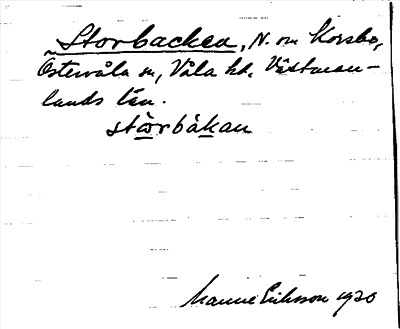 Storbacken, N. om Korsbo,
Östervåla sn, Våla hd. Västman-
lands län.
störbåkan
Manne Eriksson 1930